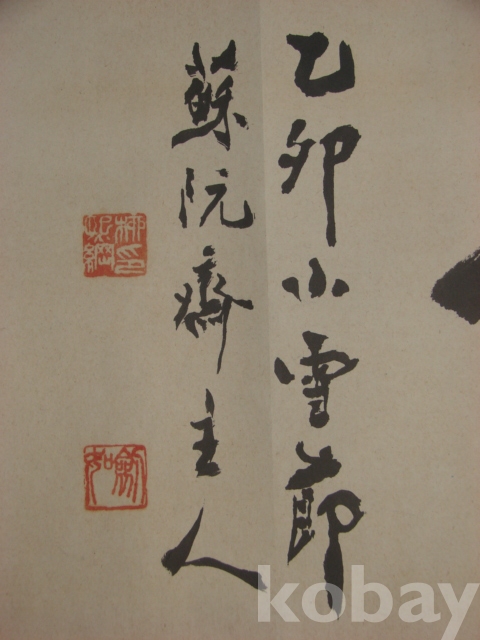 乙卯小雪節
蘇阮齋主人
kobay